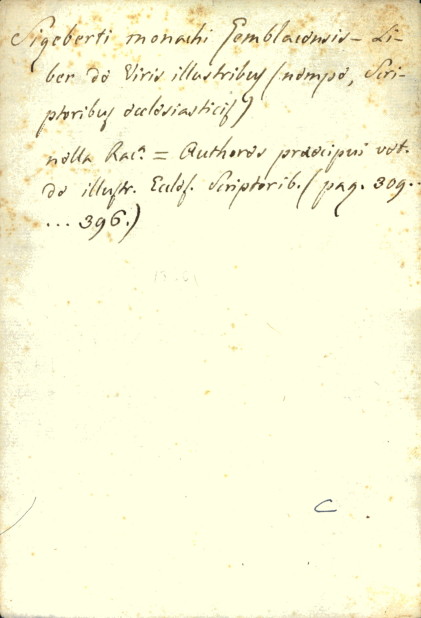 Sigeberti monachi Gemblacensis - Li-
ber de Viris illustribus (nempe, Scri-
ptoribus ecclesiasticis)
nella Racª. = Authores præcipui vet.
de illustr. Eccles. Scriptorib. (pag. 309..
... 396.)
C